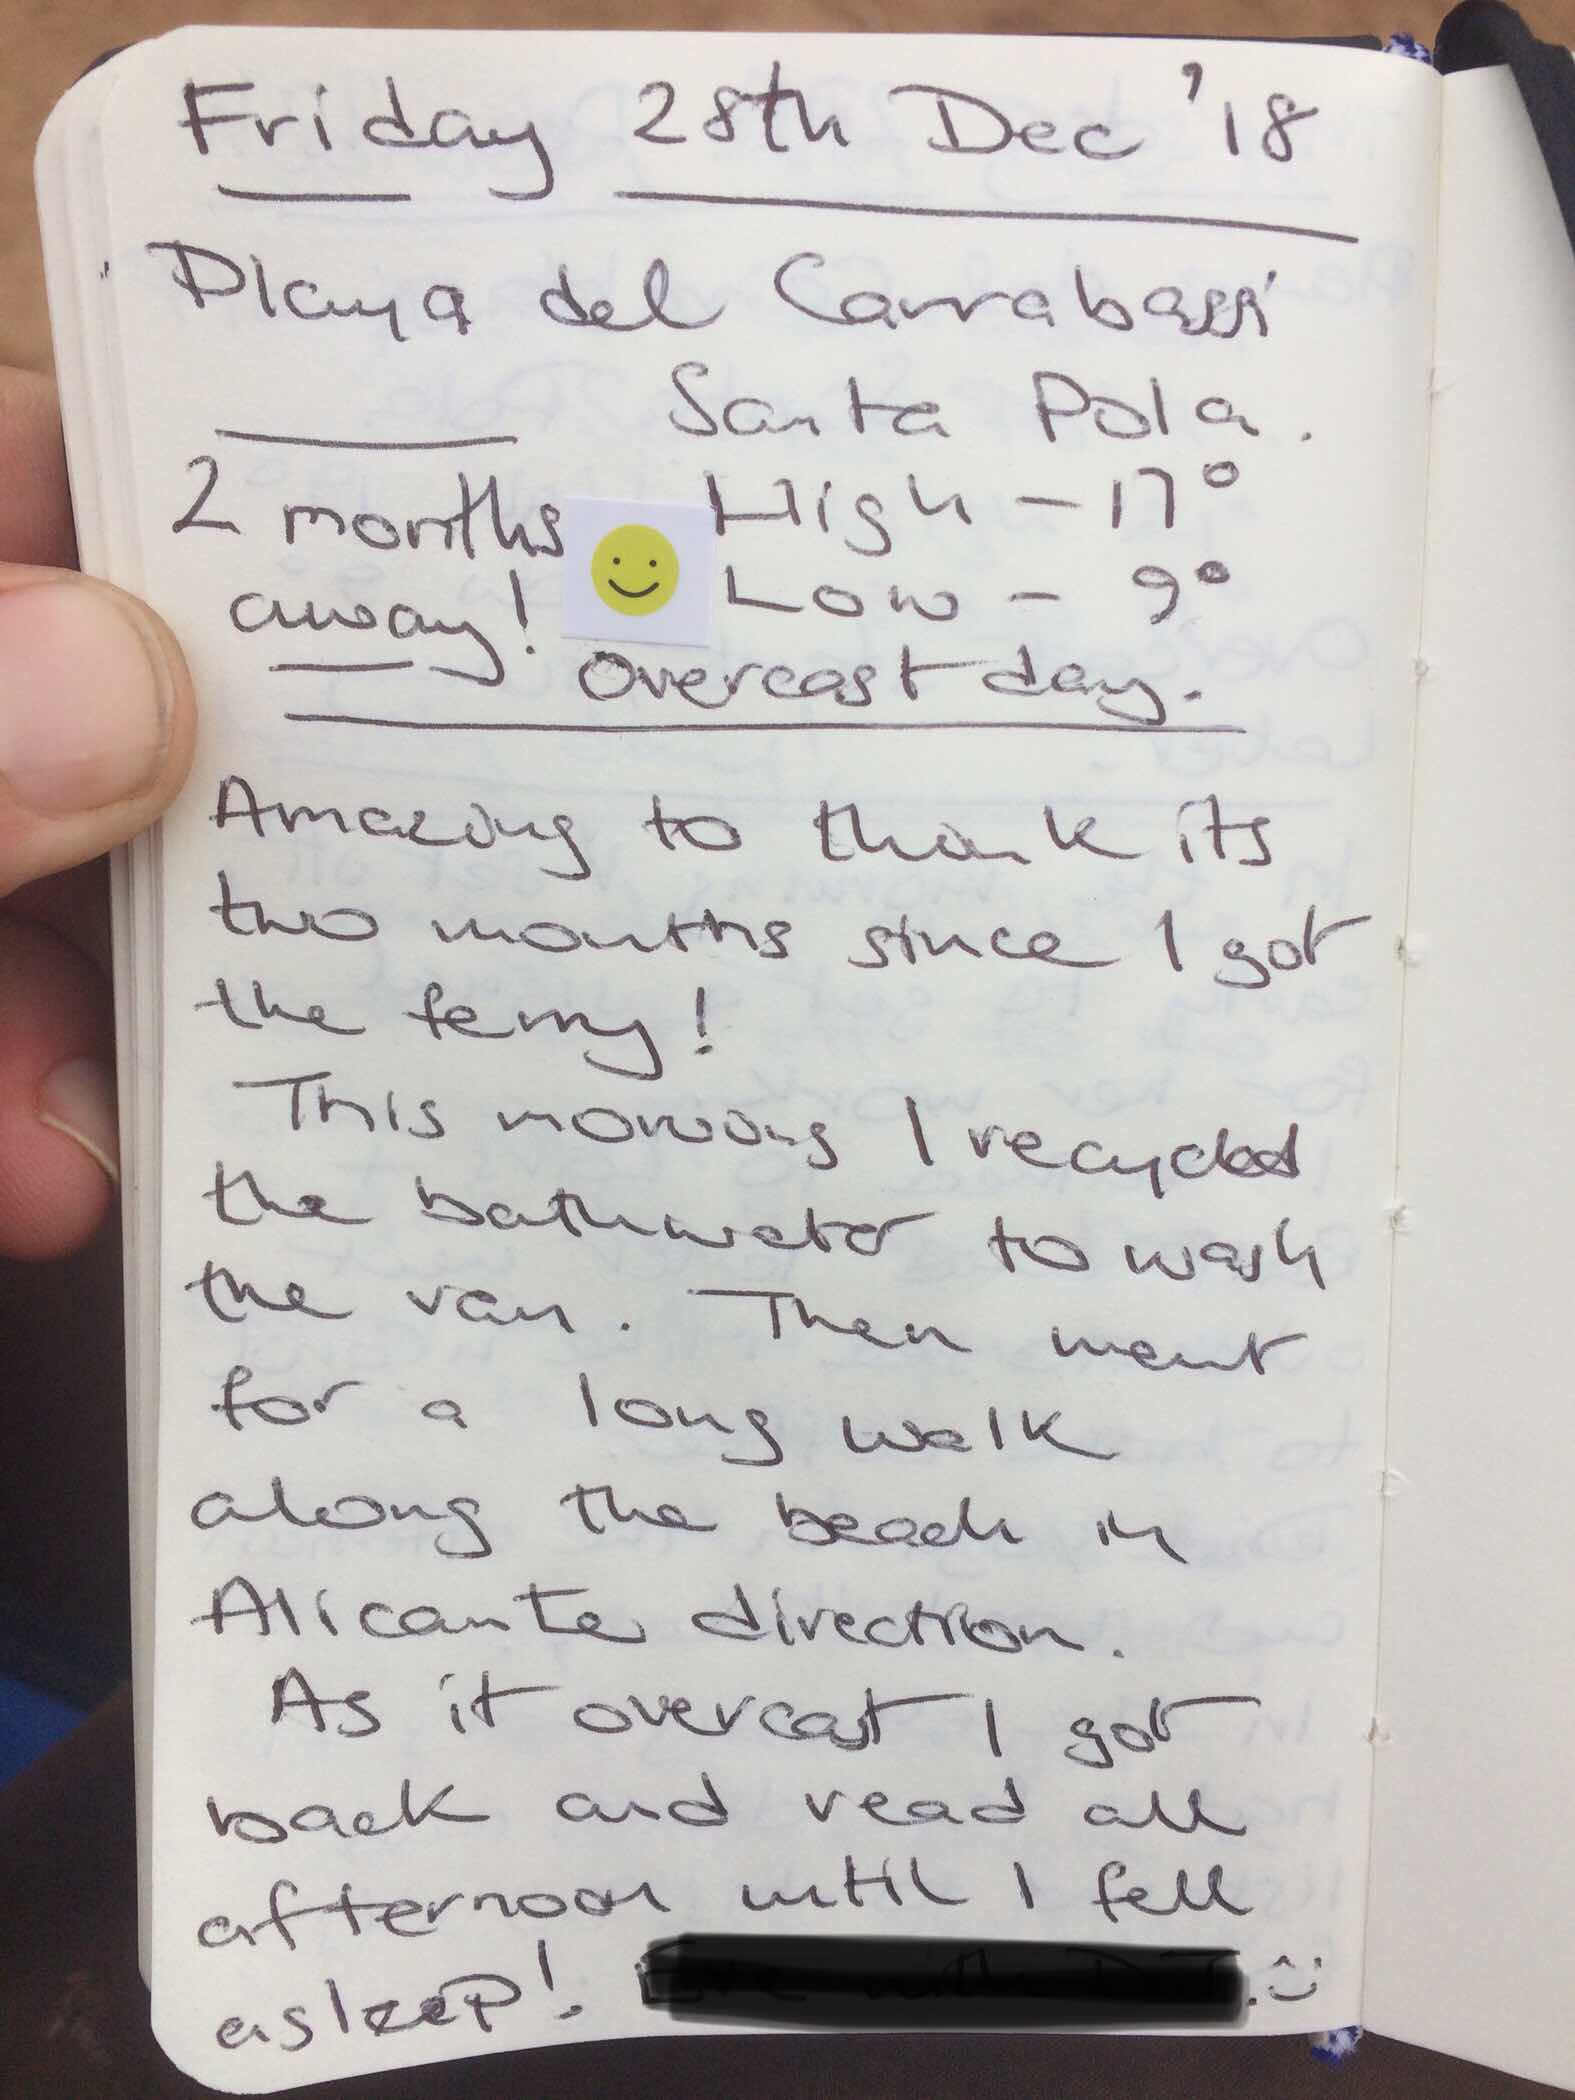 Friday 28th Dec '18
Playa del Carrabassi
Santa Pola.
2 months High - 17°
away! Low - 9°
Overcast day.
Amazing to think its
two months since I got
the ferry!
This morning I recycled
the bathwater to wash
the van. Then went
for a long walk
along the beach in
Alicante direction.
As it overcast I got
back and read all
afternoon until I fell
asleep!